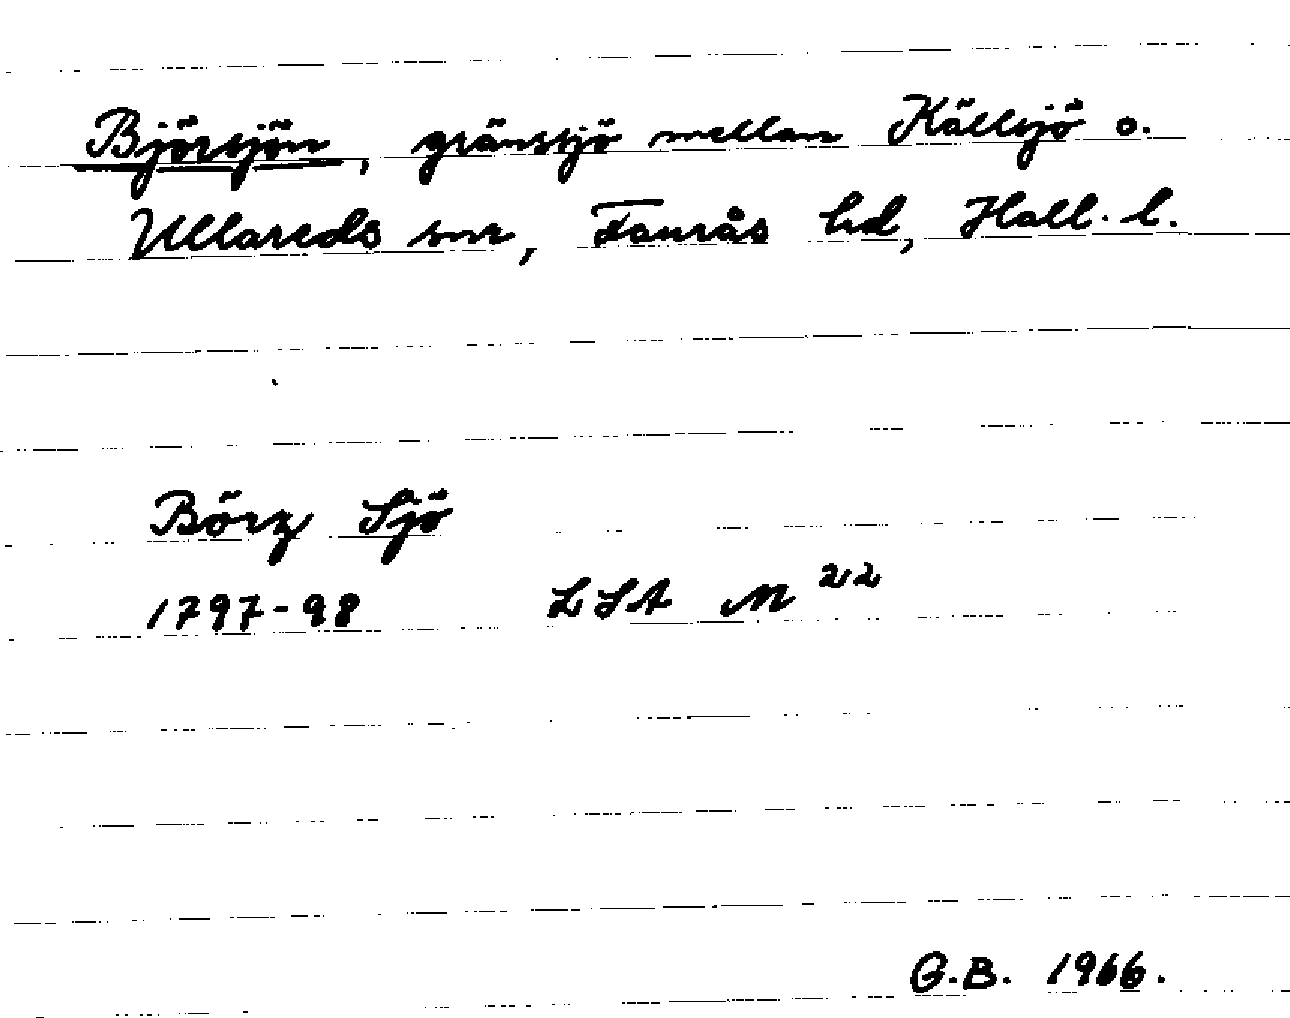 Björsjön, gränssjö mellan Källsjö o.
Ullareds snr, Faurås hd, Hall. l.
Börz Sjö
1797-98 LSA M 22
G.B. 1966.